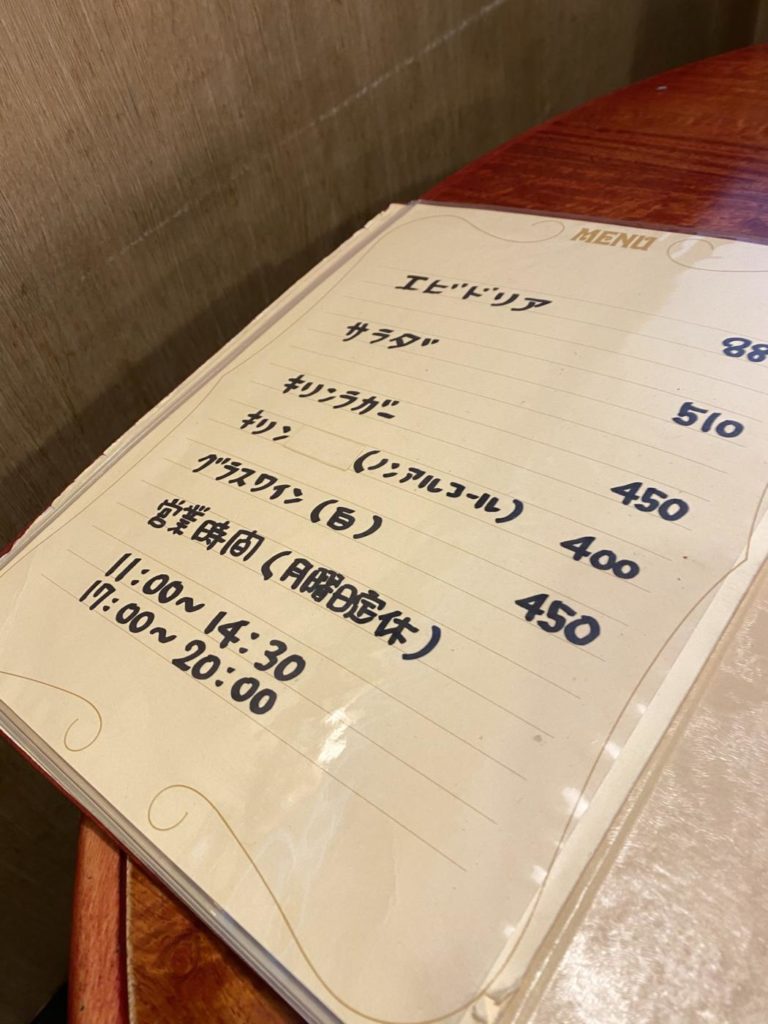 MENU
エビドリア 88
サラダ 510
キリンラガー 450
キリン (ノンアルコール) 400
グラスワイン (白) 450
営業時間 (月曜日定休)
11:00~ 14:30
17:00~ 20:00